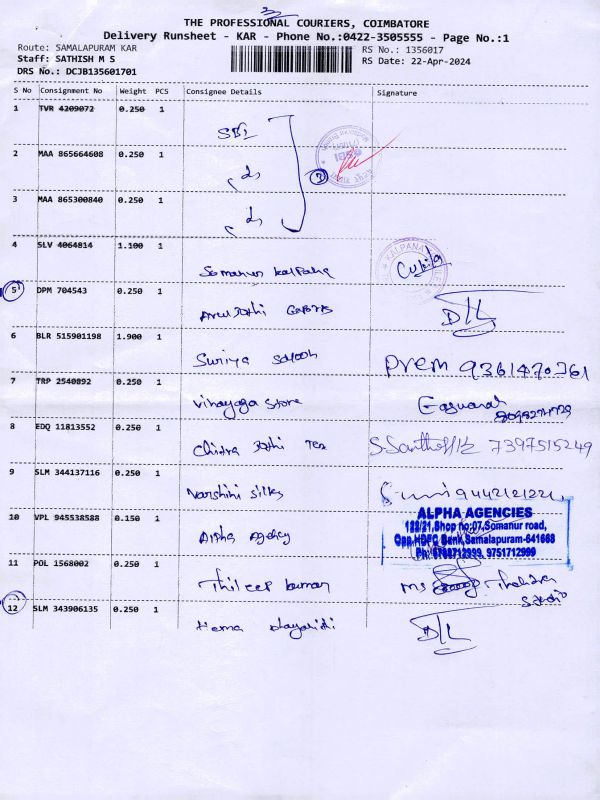 3
THE PROFESSIONAL COURIERS, COIMBATORE
Delivery Runsheet - KAR - Phone No.:0422-3505555 - Page No.:1
Route: SAMALAPURAM KAR
RS No.: 1356017
Staff: SATHISH M S
RS Date: 22-Apr-2024
DRS No.: DCJB135601701
S No Consignment No Weight PCS Consignee Details Signature
1 TVR 4209072 0.250 1 SBI
2 MAA 865664608 0.250 1 do
3 MAA 865300840 0.250 1 do
4 SLV 4064814 1.100 1 Somanur Kalpana
KALPANA
5 DPM 704543 0.250 1 Arul Jothi D/L
6 BLR 515901198 1.900 1 Suriya Prem 9361470361
7 TRP 2540892 0.250 1 Vinayaga Store
8 EDQ 11813552 0.250 1 Chitra Jothi Tex 7397515249
9 SLM 344137116 0.250 1 Varshini Silks
10 VPL 945538588 0.150 1 Alpha Agency
ALPHA AGENCIES
122/21,Shop no:07,Somanur road,
Opp.HDFC Bank,Samalapuram-641668
Ph: 9788712999, 9751712999
11 POL 1568002 0.250 1 Thileep kumar
12 SLM 343906135 0.250 1 Hema D/L